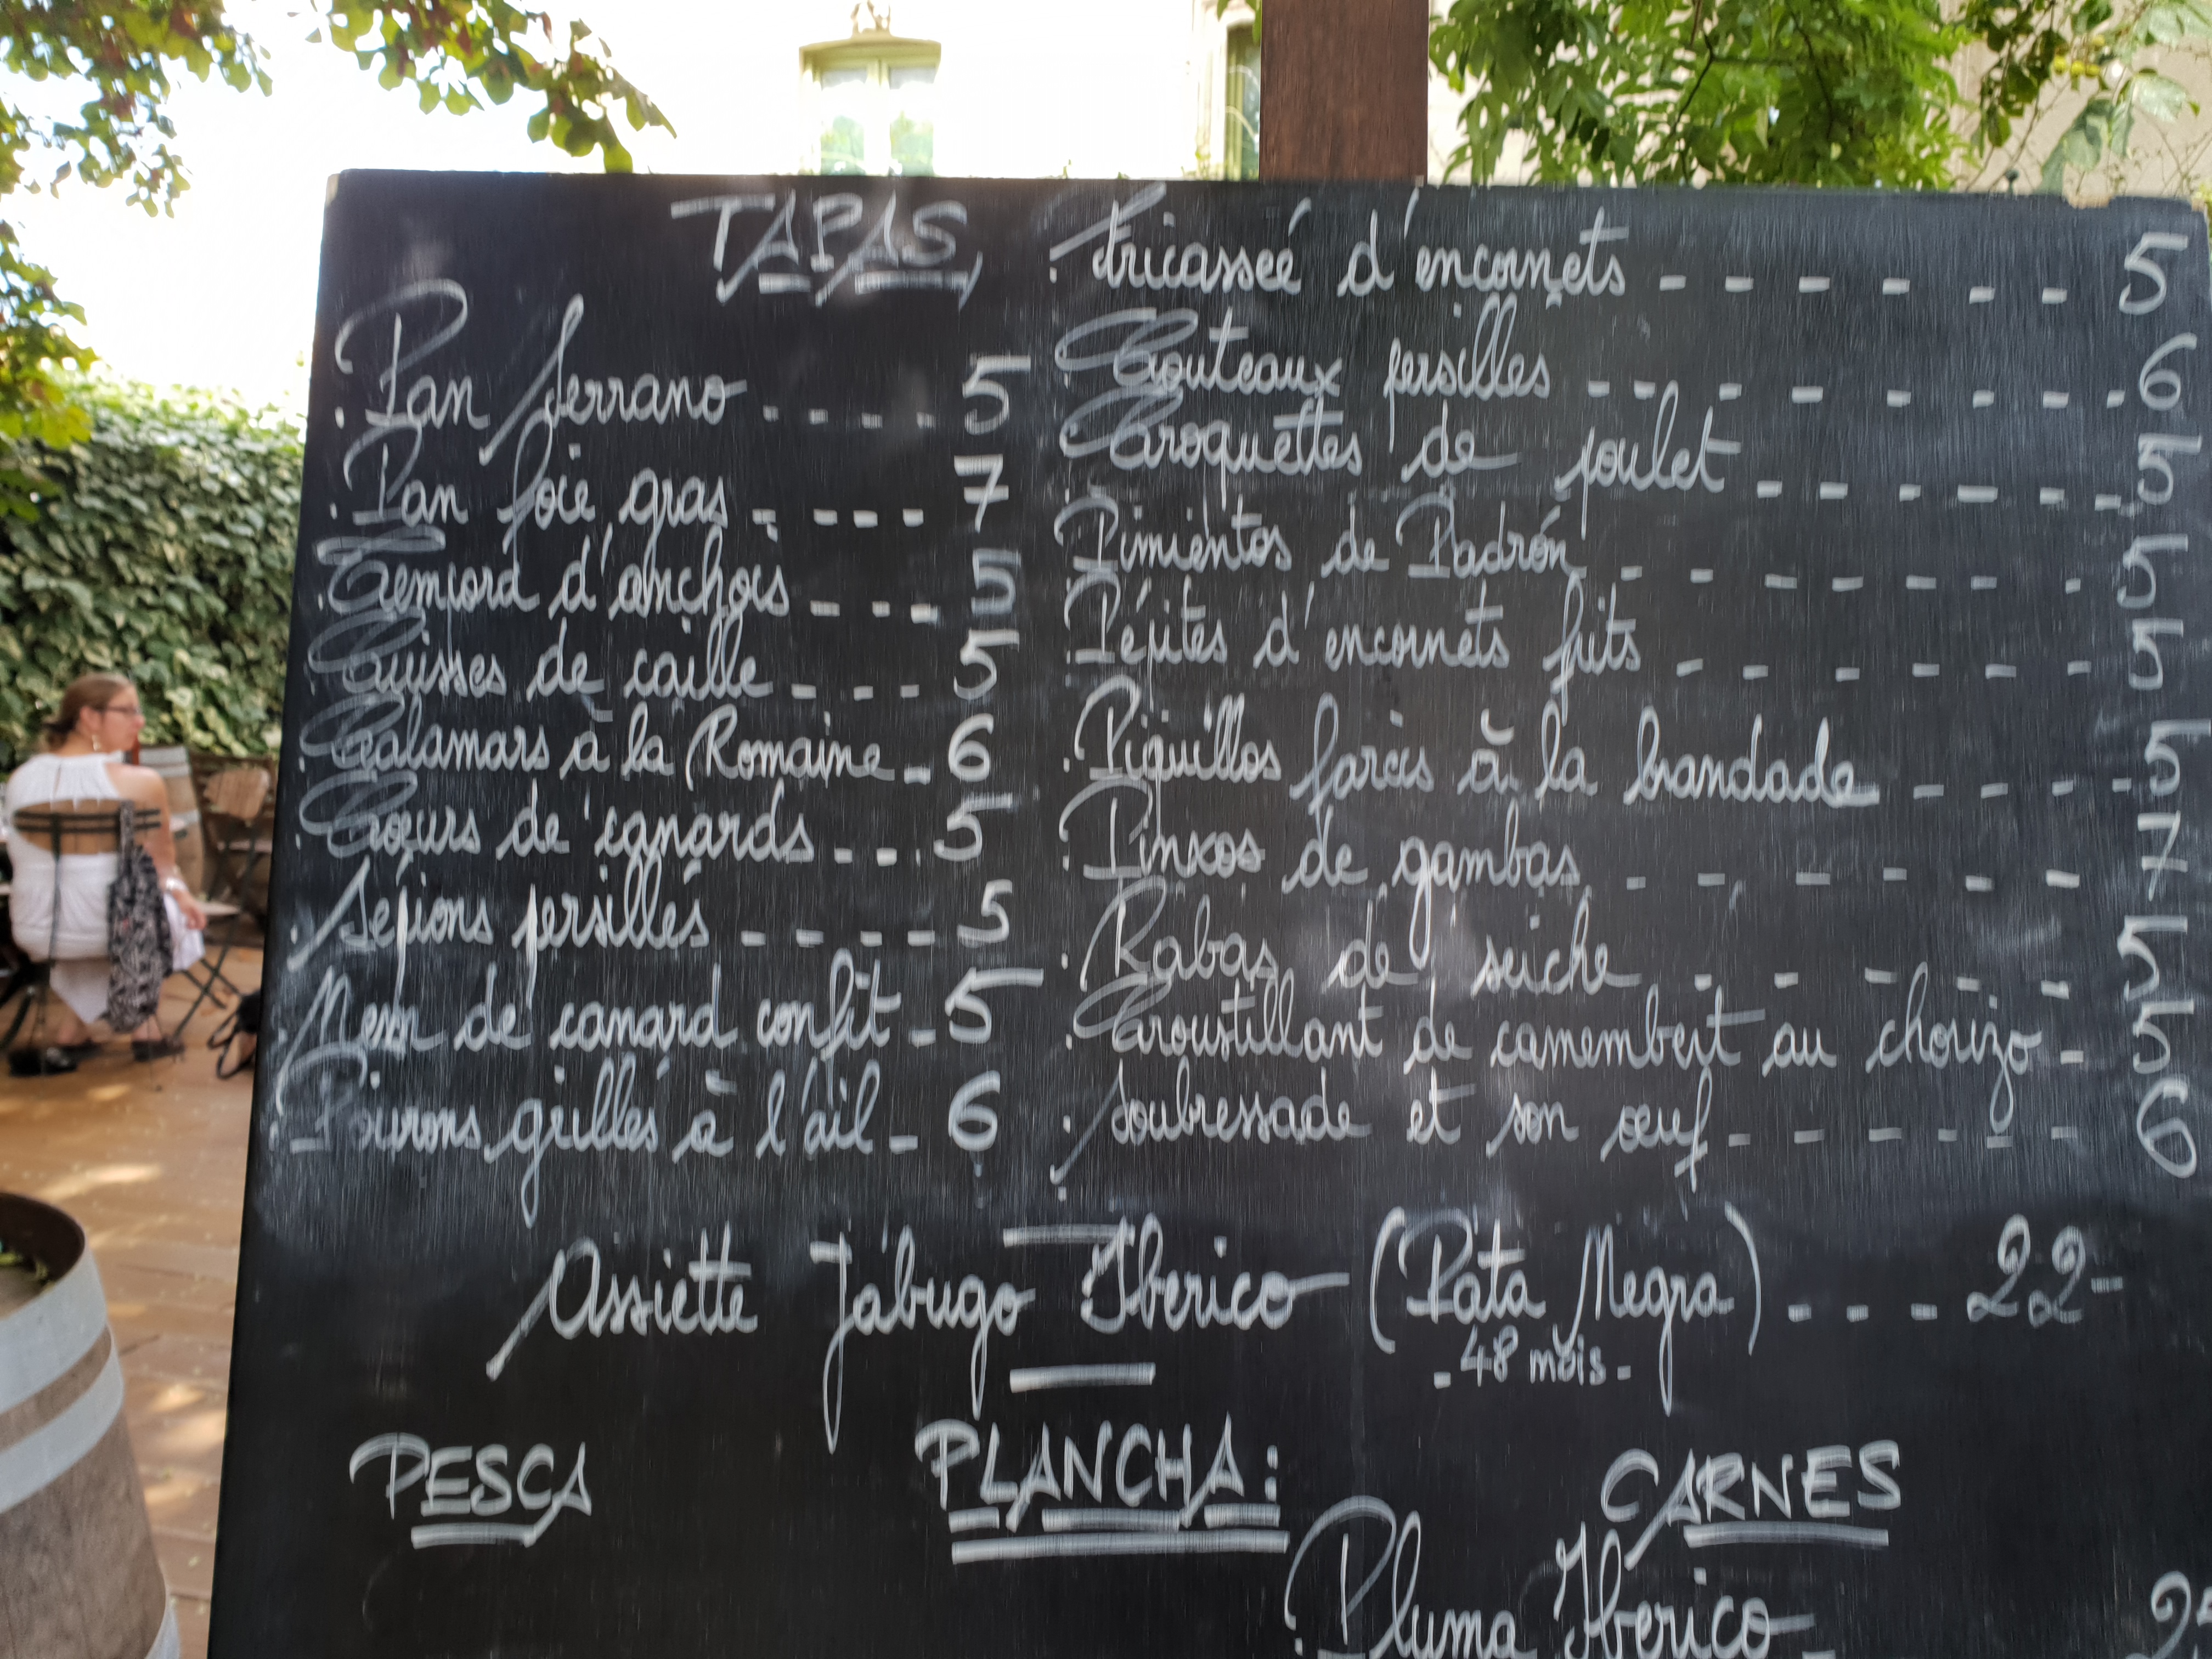 TAPAS
. Pan Serrano .... 5
. Pan foie gras .... 7
. Tempord d'anchois ... 5
. Cuisses de caille ... 5
. Calamars à la Romaine - 6
. Coeurs de canards ... 5
. Sépions persillés .... 5
. Nem de canard confit - 5
. Poivrons grillés à l'ail - 6
. Fricasseé d'encornets ...... 5
. Couteaux persilles ........ 6
. Croquettes de poulet ..... 5
. Pimientos de Padrón ...... 5
. Pépites d'encornets frits ...... 5
. Piquillos farcis à la brandade .... 5
. Pinxos de gambas ...... 7
. Rabas de seiche ..... 5
. Croustillant de camembert au chorizo - 5
. Soubressade et son œuf ..... 6
Assiette Jabugo Iberico (Pata Negra) ... 22-
- 48 mois -
PESCA
PLANCHA :
CARNES
. Pluma Iberico -